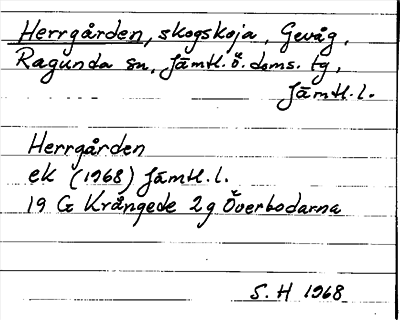 Herrgården, skogskoja, Gevåg,
Ragunda sn, Jämtl. ö. doms. tg,
Jämtl. l.
Herrgården
ek (1968) Jämtl. l.
19 G Krångede 2g Överbodarna
S. H 1968